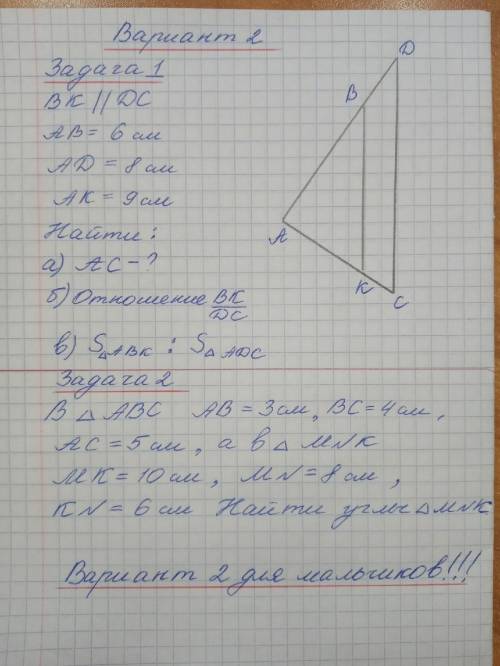 Вариант 2
Задача 1
BK || DC
AB = 6 см
AD = 8 см
AK = 9 см
Найти:
а) AC - ?
б) Отношение BK/DC
в) S△ABK : S△ADC
D
B
A
K
C
Задача 2
В △ ABC AB = 3 см, BC = 4 см,
AC = 5 см, а в △ MNK
MK = 10 см, MN = 8 см,
KN = 6 см Найти углы △MNK
Вариант 2 для мальчиков!!!